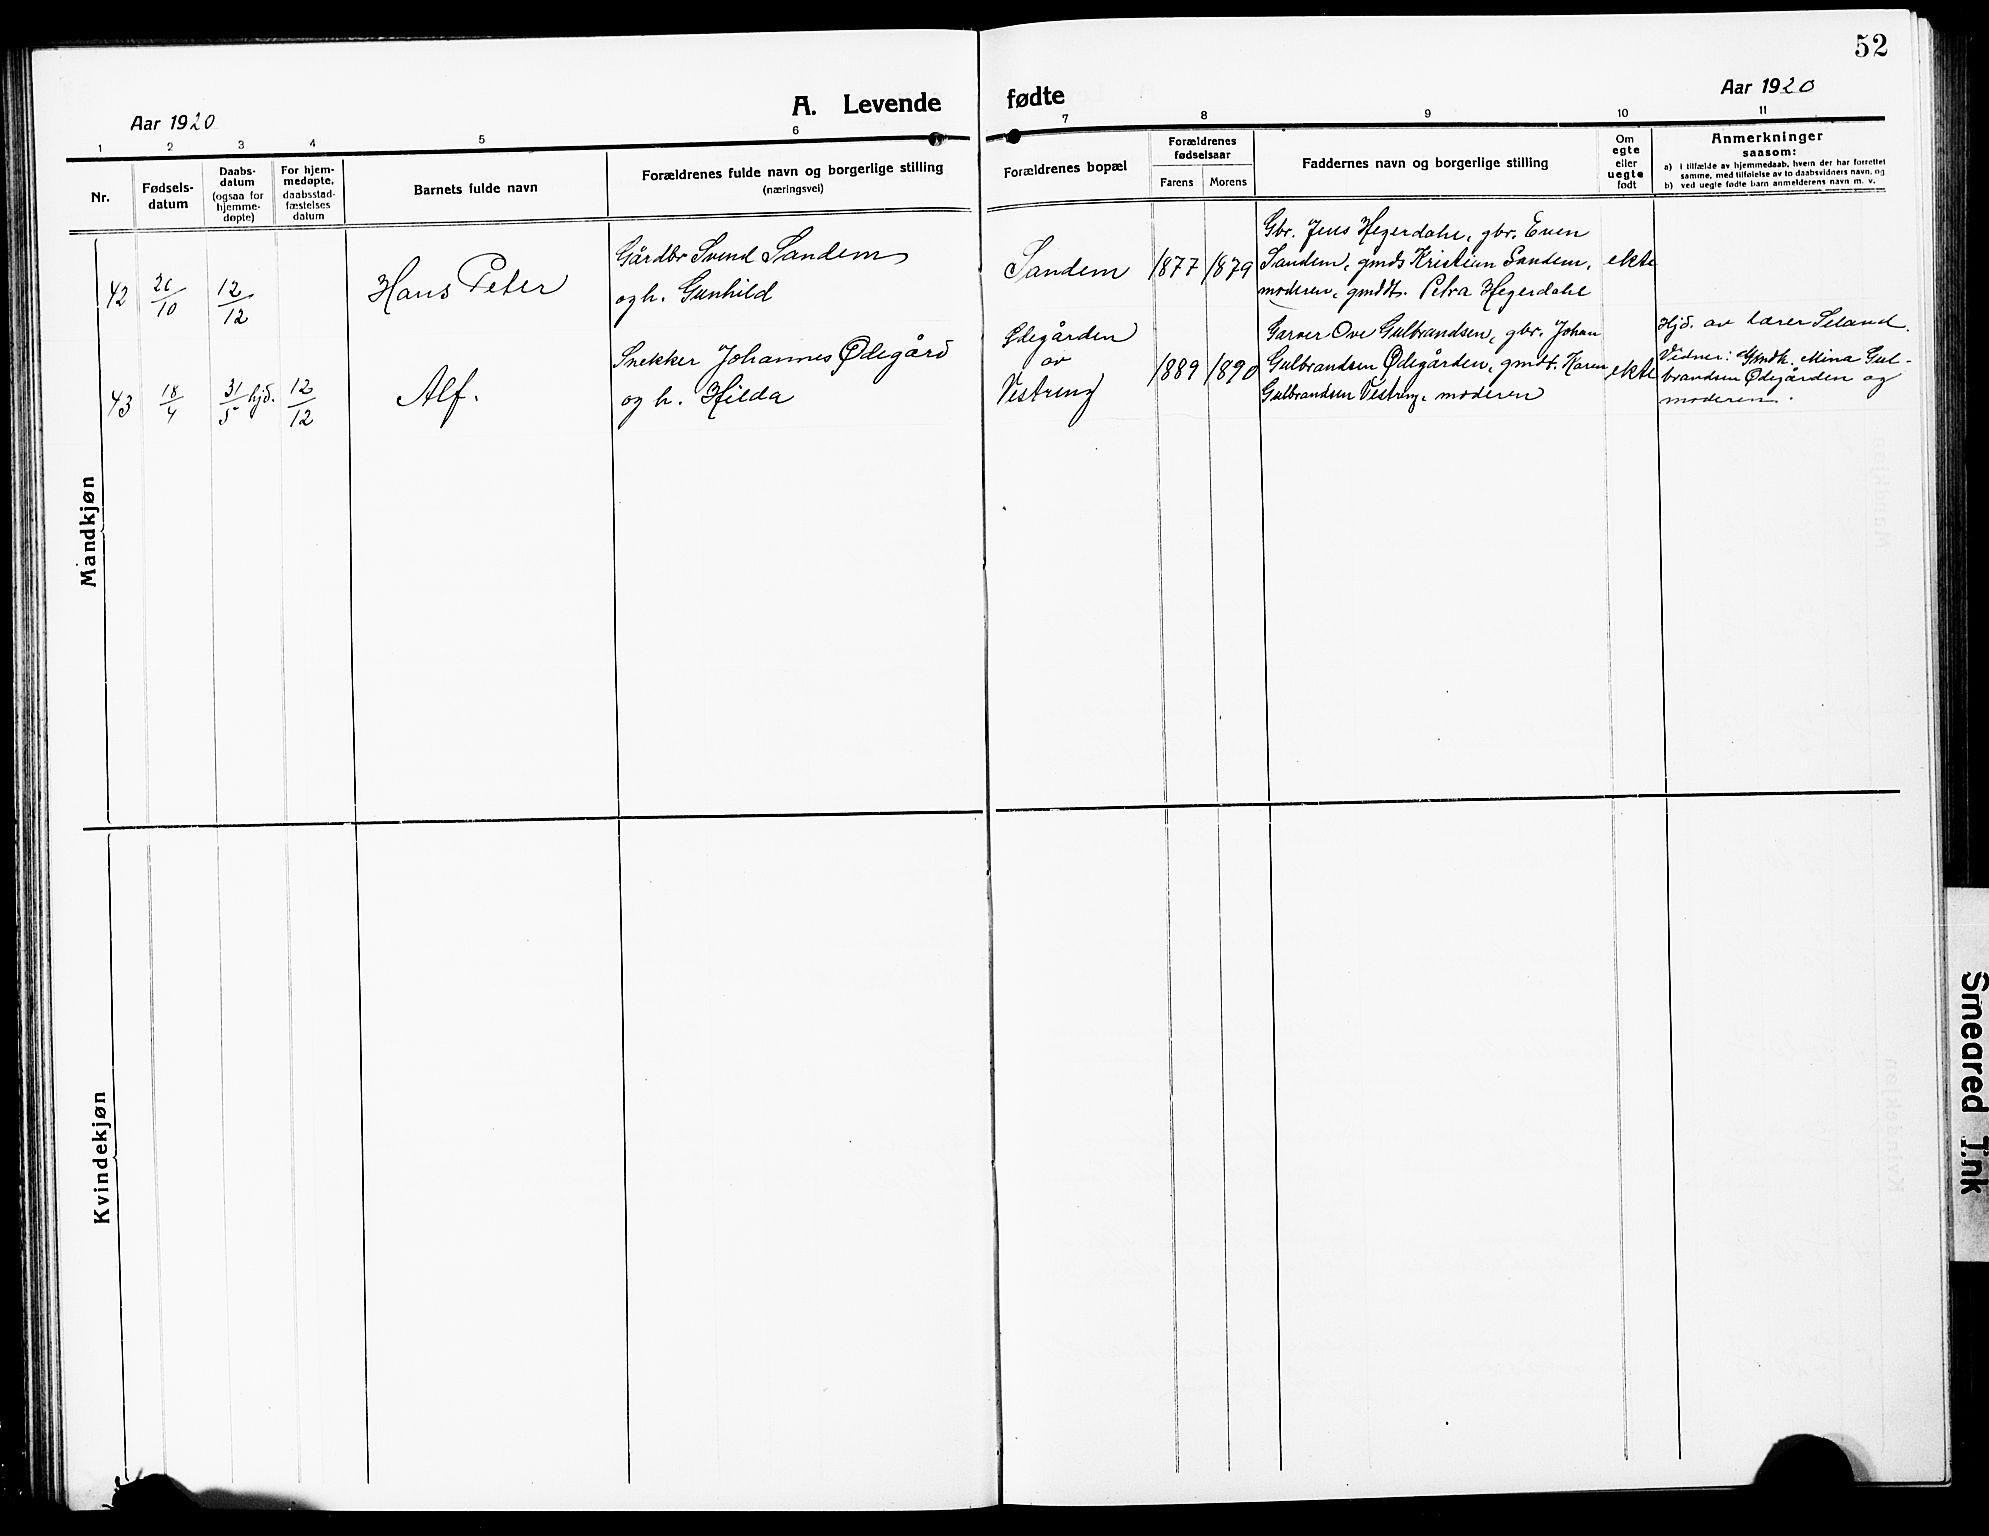 52
Aar 1920
A. Levende fødte
Aar 1920
1 2 3 4 5 6 7 8 9 10 11
Nr.
Fødsels-
datum
Daabs-
datum
(ogsaa for
hjemme-
døpte)
For hjem-
medøpte,
daabsstad-
fæstelses
datum
Barnets fulde navn
Forældrenes fulde navn og borgerlige stilling
(næringsvei)
Forældrenes bopæl
Forældrenes
fødselsaar
Farens Morens
Faddernes navn og borgerlige stilling
Om
egte
eller
uegte
født
Anmerkninger
saasom:
a) i tilfælde av hjemmedaab, hvem der har forrettet
samme, med tilføielse av to daabsvidners navn, og
b) ved uegte fødte barn anmelderens navn m. v.
Mandkjøn
42
20/10
12/12
Hans Peter
Gårdbr Svend Sandem
og h. Gunhild
Sandem
1877 1879
Gbr. Jens Hegerdahl, gbr. Even
Sandem, gmds Kristian Sandem,
moderen, gmddt. Petra Hegerdahl
ekte
43
18/4
31/5 hjd.
12/12
Alf.
Snekker Johannes Ødegård
og h. Hilda
Ødegården
av
Vestreng
1889 1890
Garver Ove Gulbrandsen, gbr. Johan
Gulbrandsen Ødegården, gmdt. Karen
Gulbrandsen Vestreng, moderen
ekte
Hjd. av lærer Seland.
Vidner: Gmdk. Mina Gul-
brandsen Ødegården og
moderen.
Kvindekjøn
Smeared Ink